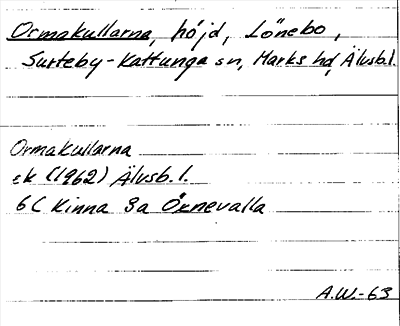 Ormakullarna, höjd, Lönebo,
Surteby-Kattunga sn, Marks hd, Älvsb.l.
Ormakullarna
ek (1962) Älvsb.l.
6C Kinna 3a Öxnevalla
A.W.-63